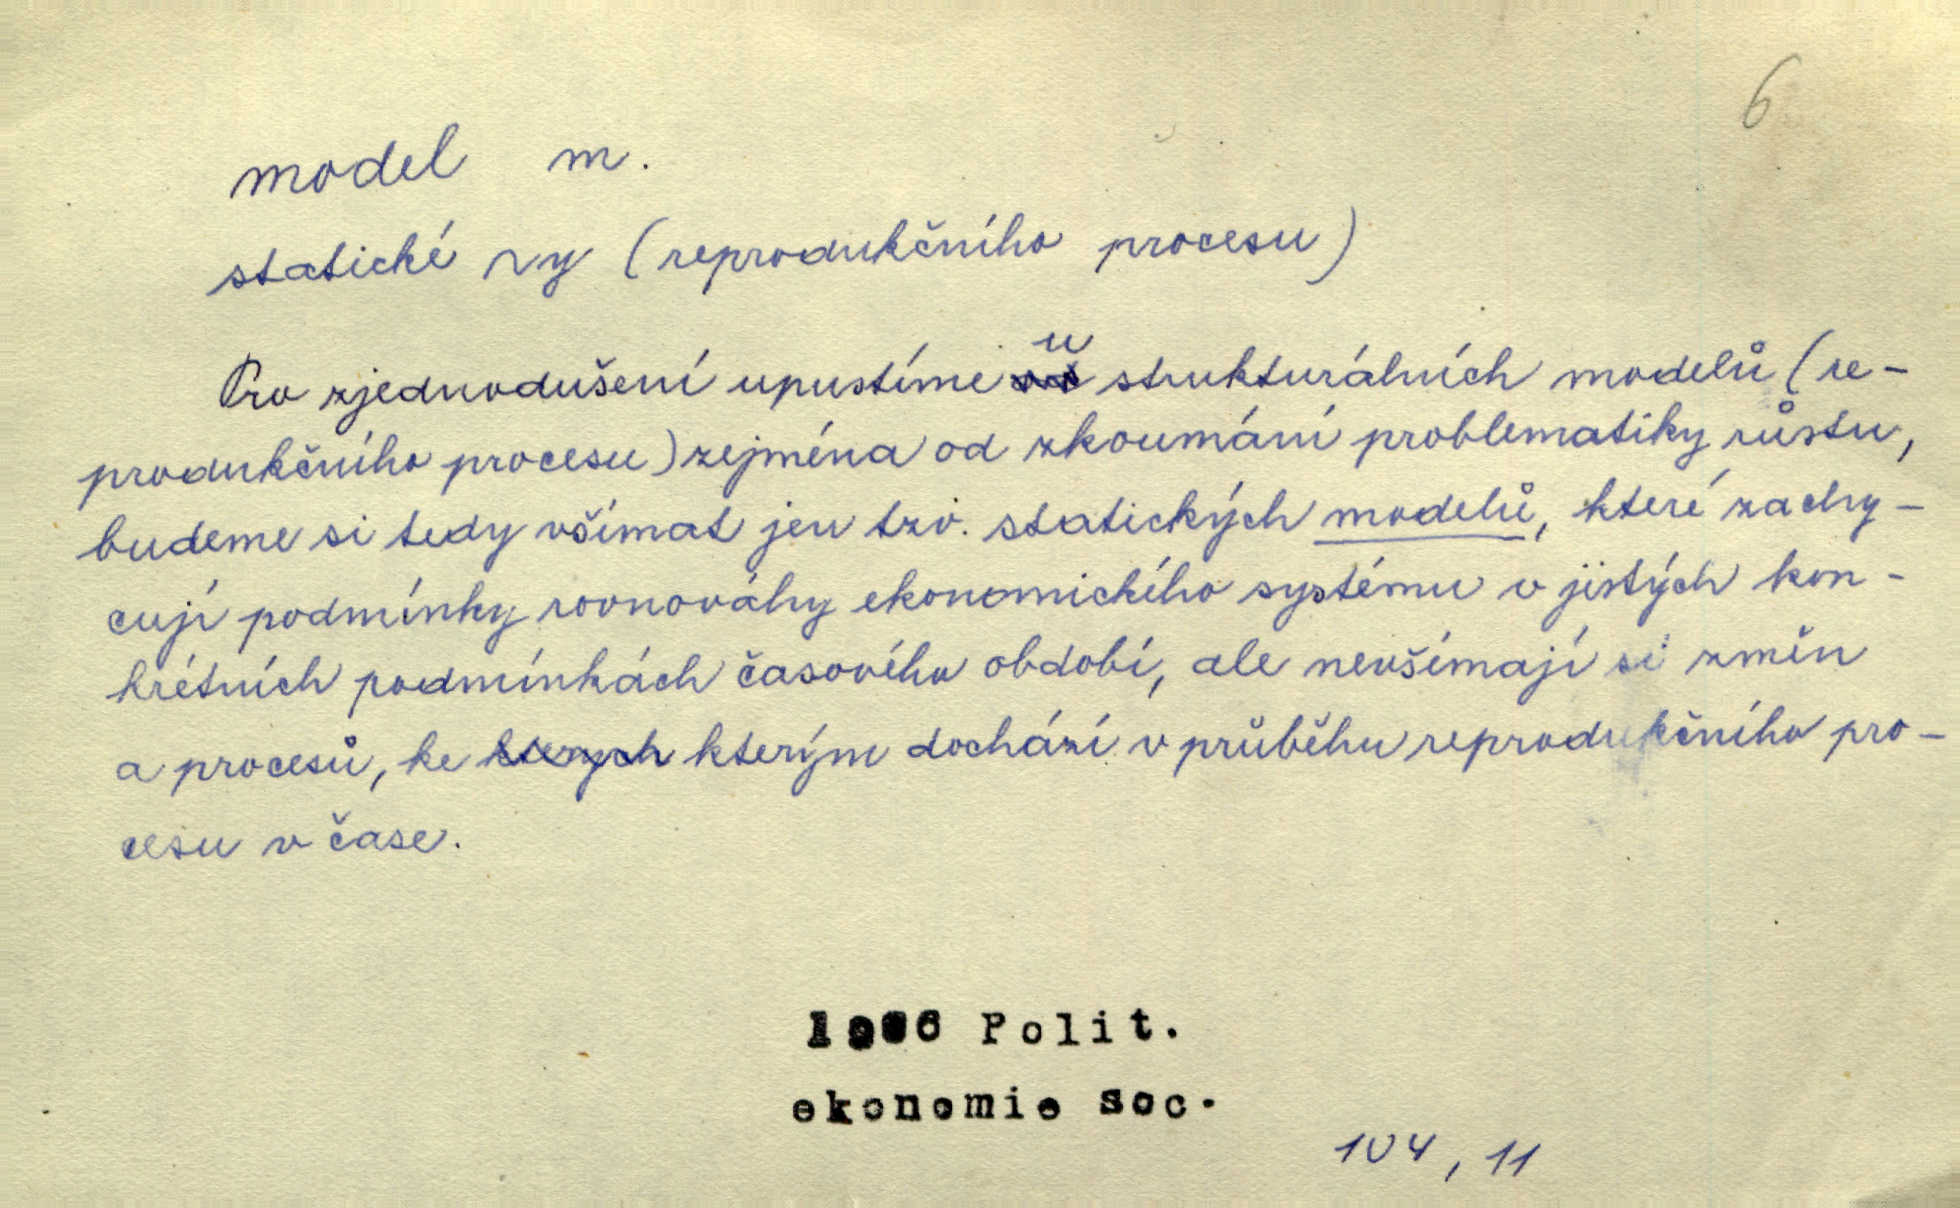 6
model m.
statické ~y (reprodukčního procesu)
u
Pro zjednodušení upustíme strukturálních modelů (re-
produkčního procesu) zejména od zkoumání problematiky růstu,
budeme si tedy všímat jen tzv. statických modelů, které zachy-
cují podmínky rovnováhy ekonomického systému v jistých kon-
krétních podmínkách časového období, ale nevšímají si změn
a procesů, ke kterých kterým dochází v průběhu reprodukčního pro-
cesu v čase.
1966 Polit.
ekonomie soc.
104, 11